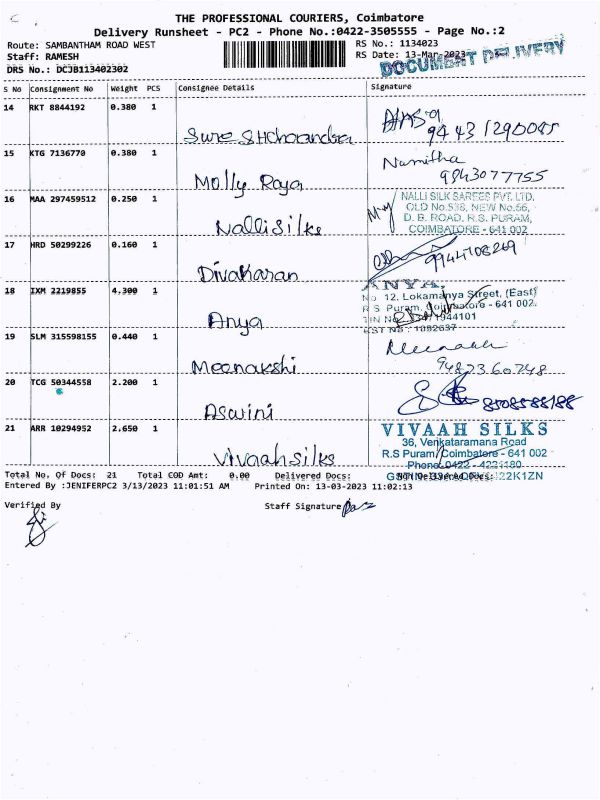 THE PROFESSIONAL COURIERS, Coimbatore
Delivery Runsheet - PC2 - Phone No.:0422-3505555 - Page No.:2
Route: SAMBANTHAM ROAD WEST RS No.: 1134023
Staff: RAMESH RS Date: 13-Mar-2023
DOCUMENT DELIVERY
DRS No.: DCJB113402302
S No Consignment No Weight PCS Consignee Details Signature
14 RKT 8844192 0.380 1
94431290085
15 KTG 7136770 0.380 1 Namitha
Molly Roya 9843077755
16 MAA 297459512 0.250 1 NALLI SILK SAREES PVT. LTD.
OLD No.538, NEW No.56,
D. B. ROAD, R.S. PURAM,
Nalli Silks COIMBATORE - 641 002
17 HRD 50299226 0.160 1
Divakaran 9944708269
18 IXM 2219855 4.300 1 ANYA,
No 12, Lokamanya Street, (East)
R S Puram, Coimbatore - 641 002.
Anya
CST NO : 1092637
19 SLM 315598155 0.440 1 Meenakshi
Meenakshi 9487360748
20 TCG 50344558 2.200 1
Aswini 8508588188
21 ARR 10294952 2.650 1 VIVAAH SILKS
36, Venkataramana Road
R.S Puram, Coimbatore - 641 002
Vivaah silks Phone 0422 - 4221180
Total No. Of Docs: 21 Total COD Amt: 0.00 Delivered Docs:
Entered By :JENIFERPC2 3/13/2023 11:01:51 AM Printed On: 13-03-2023 11:02:13
Verified By Staff Signature